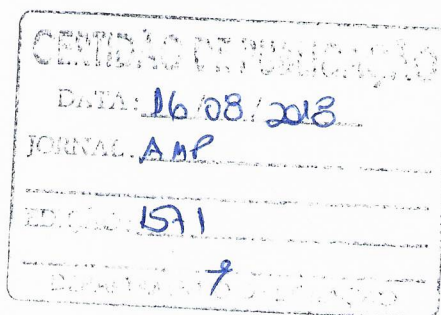 CERTIDÃO DE PUBLICAÇÃO
DATA: 16/08/2018
JORNAL: AMP
EDIÇÃO: 1571